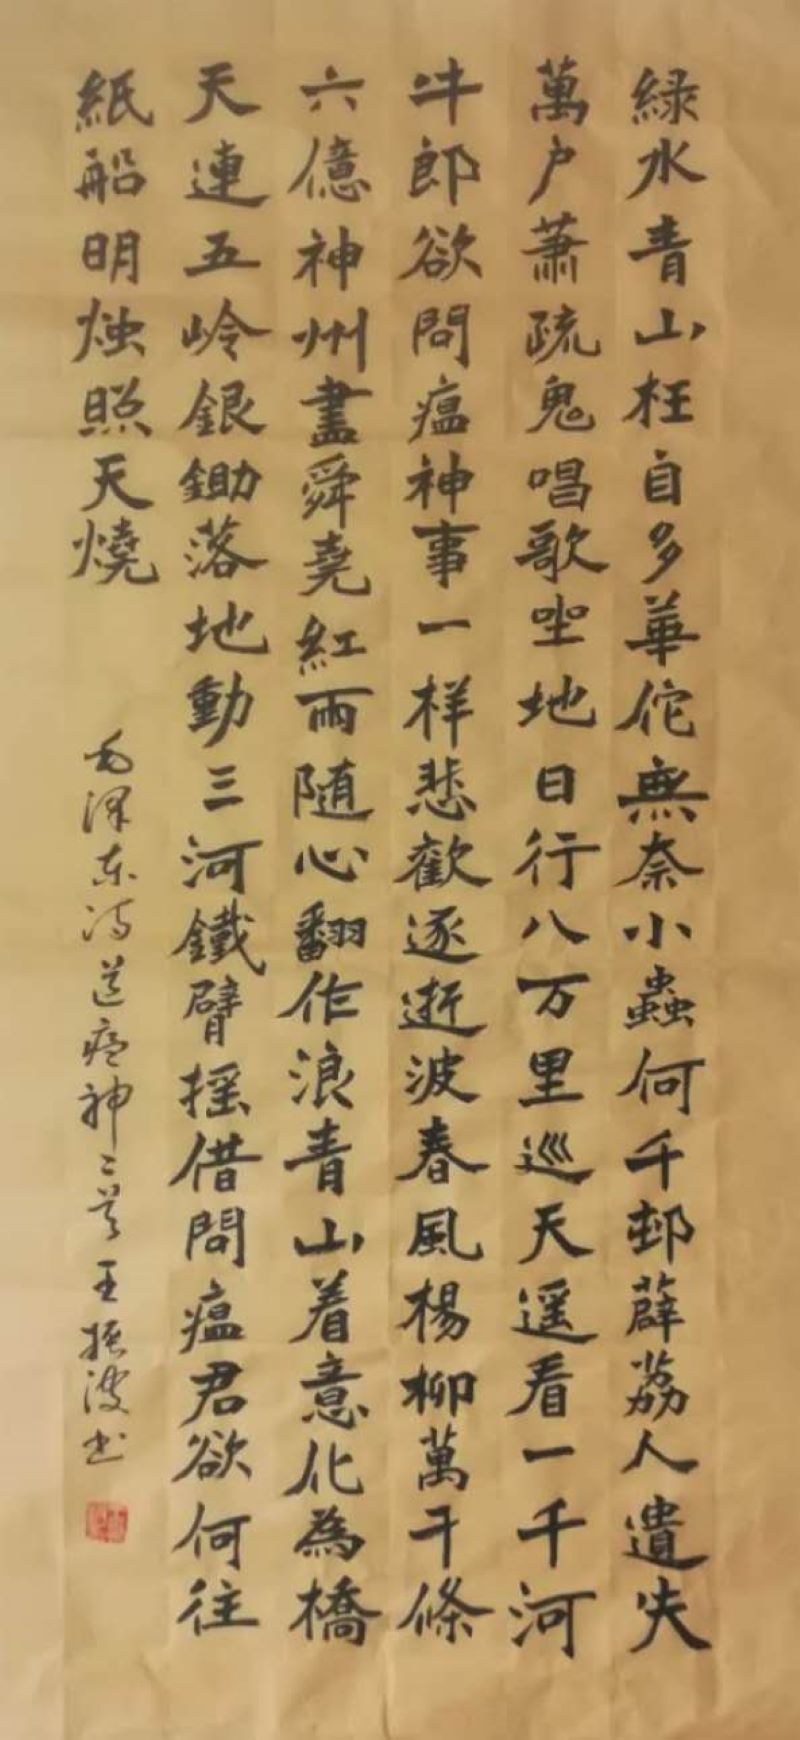 綠水青山枉自多華佗無奈小蟲何千邨薜荔人遺失
萬户蕭疏鬼唱歌坐地日行八万里巡天遥看一千河
牛郎欲問瘟神事一样悲歡逐逝波春風楊柳萬千條
六億神州盡舜堯紅雨随心翻作浪青山着意化為橋
天連五岭銀鋤落地動三河鐵臂摇借問瘟君欲何往
紙船明烛照天燒
毛泽东诗送瘟神二首王振波书